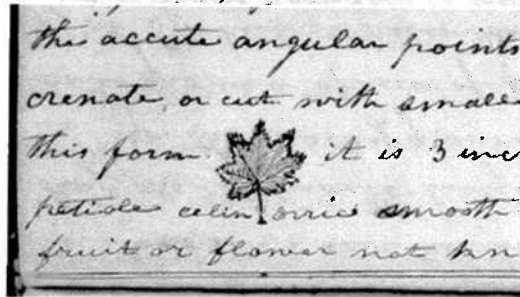 the accute angular points
crenate, or cut with small
this form it is 3 inc
petiole celindrie smooth
fruit or flower not kn